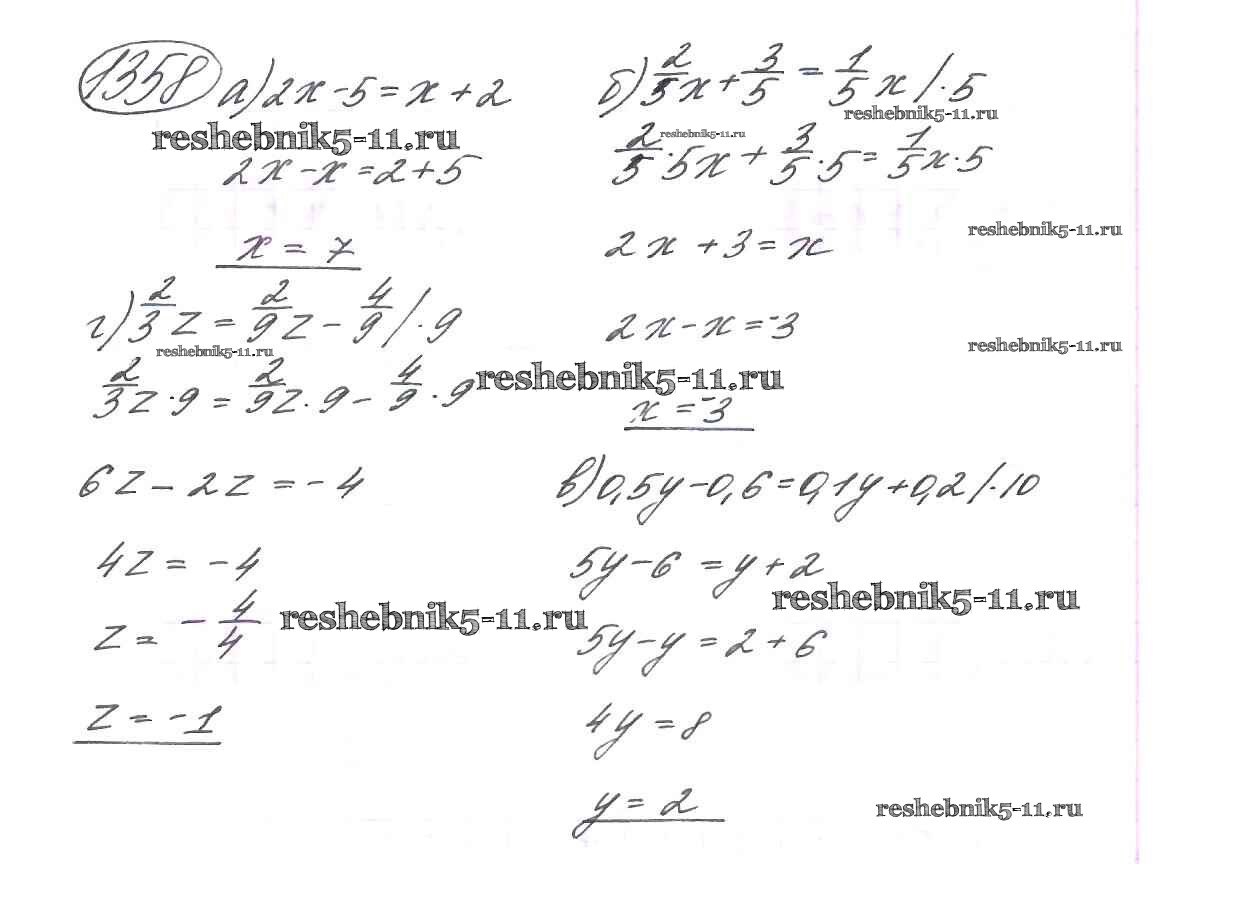 1358 а) 2x - 5 = x + 2
reshebnik5-11.ru
2x - x = 2 + 5
x = 7
б) 2/5 x + 3/5 = 1/5 x / · 5
reshebnik5-11.ru
reshebnik5-11.ru
2/5 · 5x + 3/5 · 5 = 1/5 x · 5
reshebnik5-11.ru
2x + 3 = x
2x - x = -3
reshebnik5-11.ru
reshebnik5-11.ru
x = -3
г) 2/3 z = 2/9 z - 4/9 / · 9
reshebnik5-11.ru
2/3 z · 9 = 2/9 z · 9 - 4/9 · 9
6z - 2z = -4
4z = -4
z = - 4/4
reshebnik5-11.ru
z = -1
в) 0,5y - 0,6 = 0,1y + 0,2 / · 10
5y - 6 = y + 2
reshebnik5-11.ru
5y - y = 2 + 6
4y = 8
y = 2
reshebnik5-11.ru